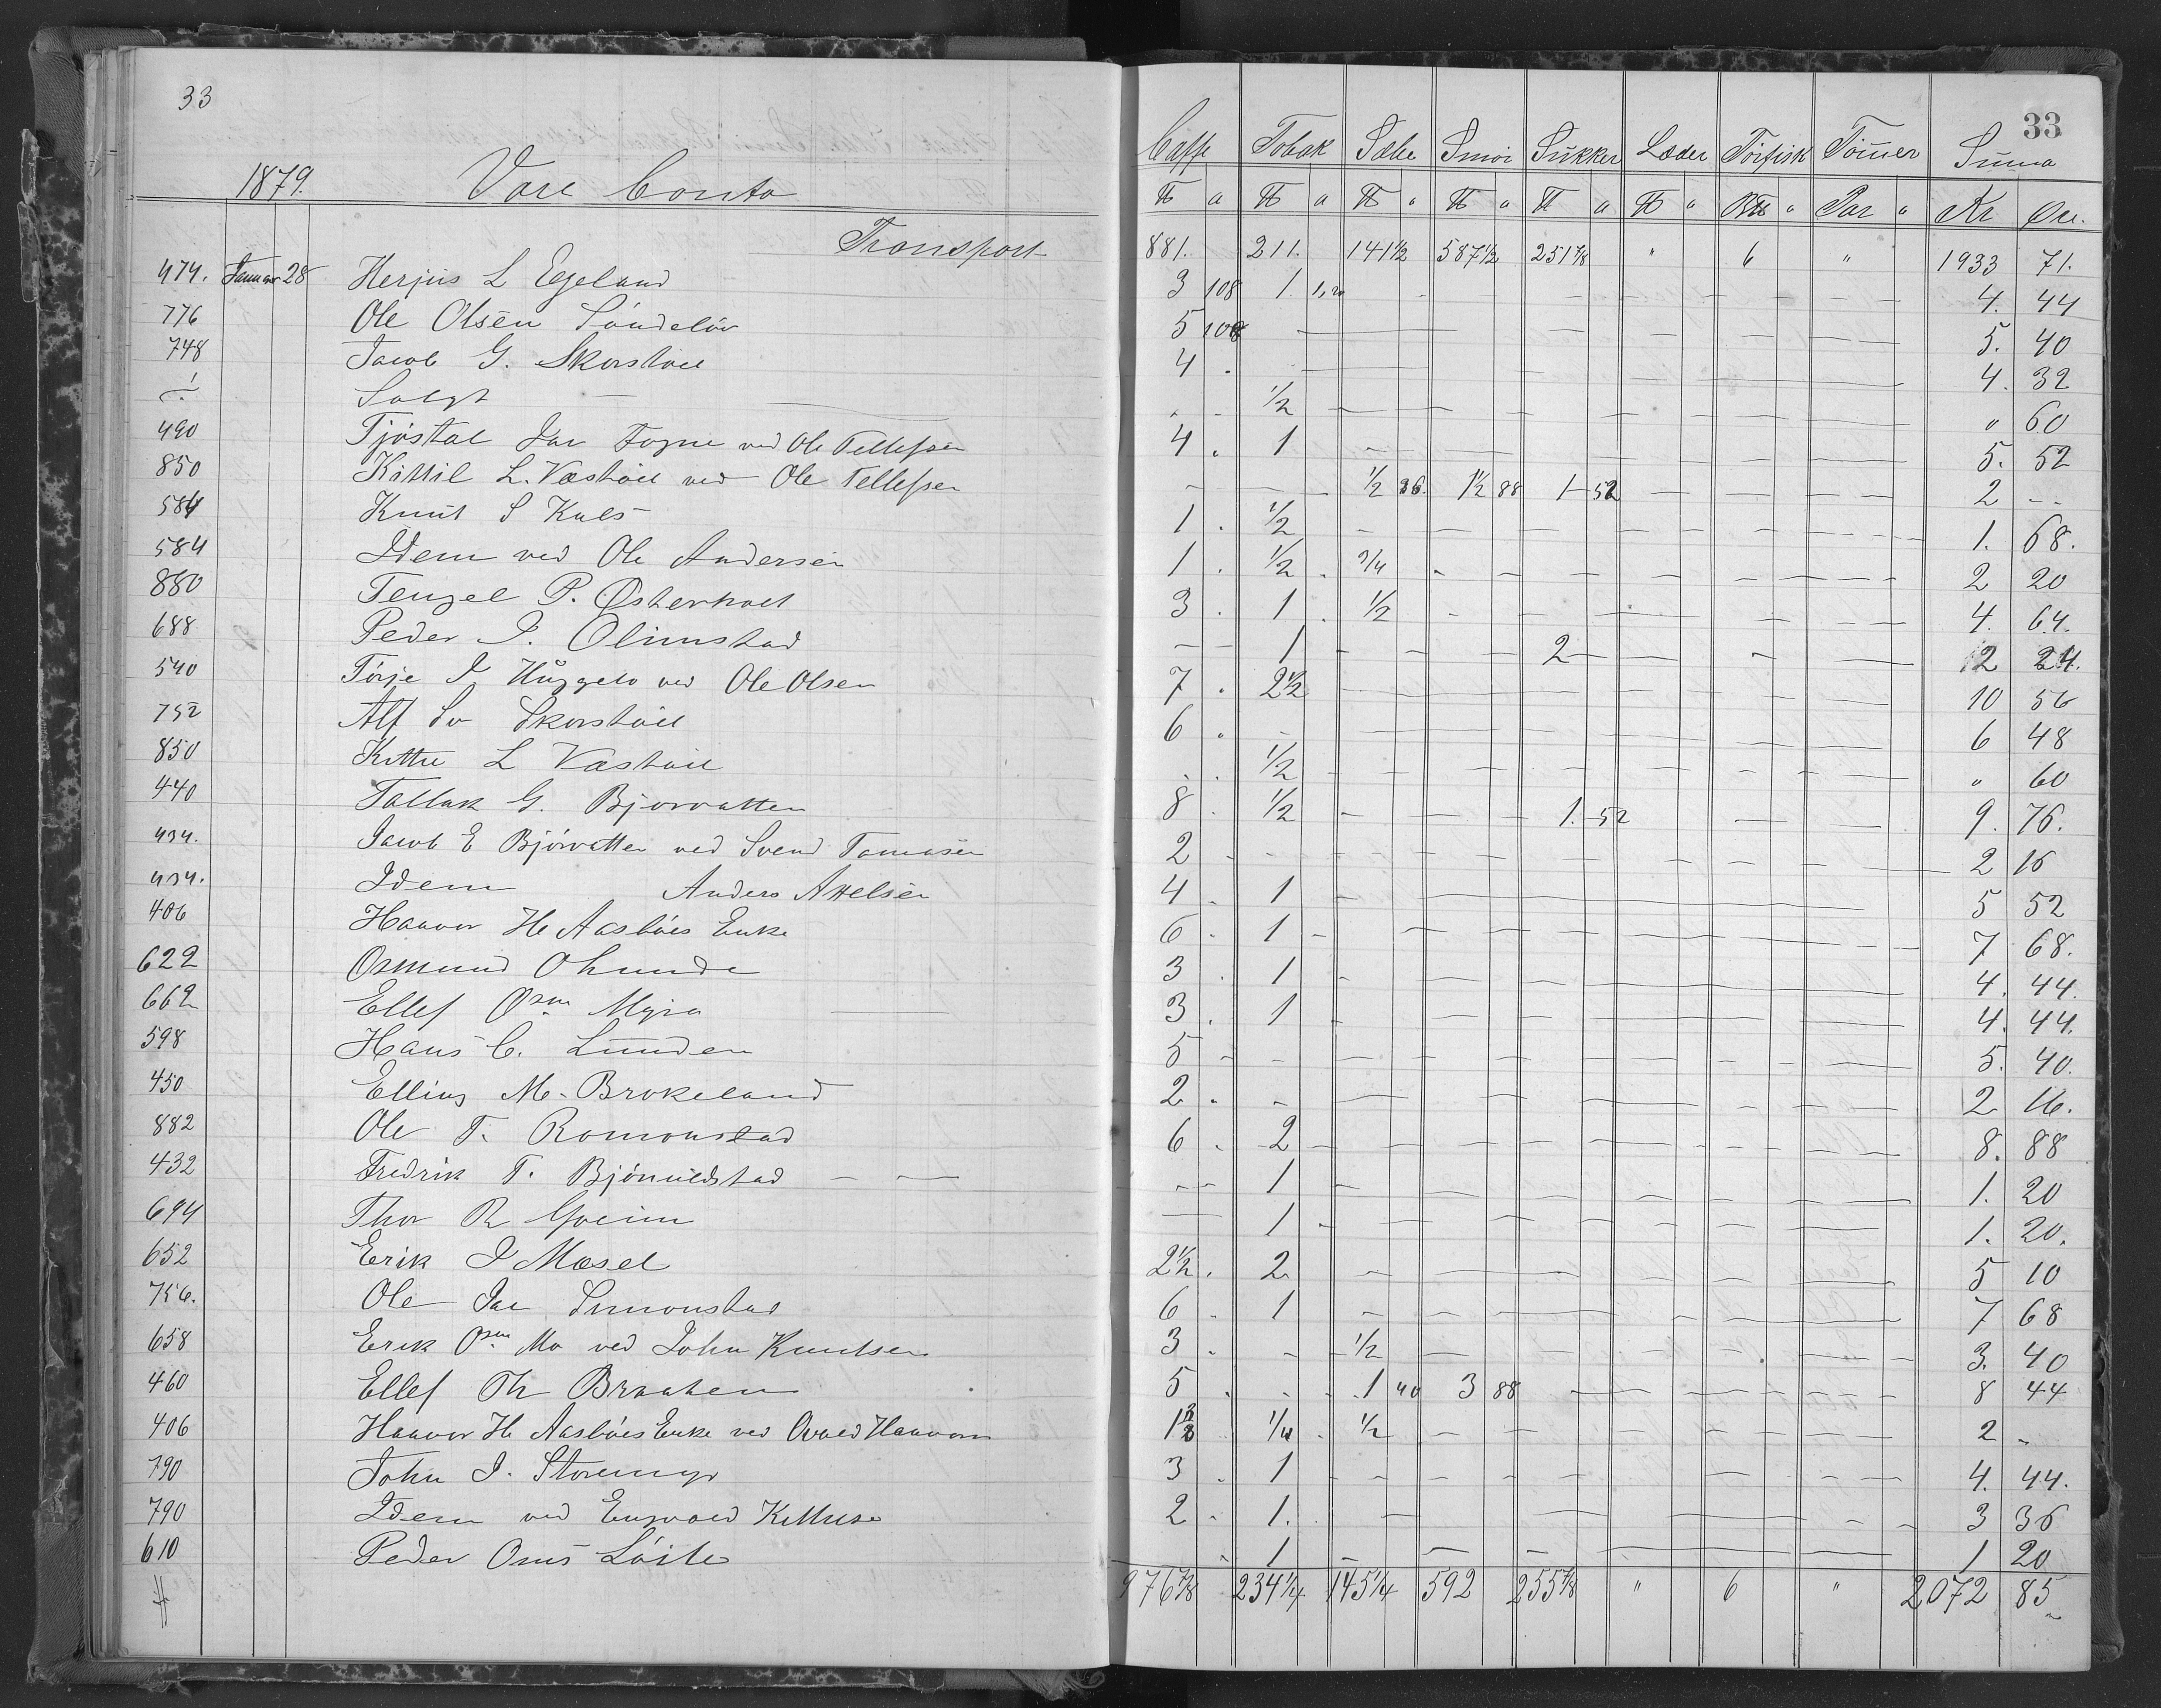 33
33
1879. Vare Conto
Caffe Tobak Sæbe Smör Sukker Læder Törfisk Tömer Suma
℔ a ℔ a ℔ a ℔ a ℔ a ℔ a a Par a Kr Öre.
Transport 881. 211. 141½ 587½ 251⅞ " 6 " 1933 71.
474. Januar 28 L Egeland 3 108 1. 1,20 4. 44
776 Ole Olsen Söndelöv 5 108 5. 40
748 Jacob G. Skorstöel 4 . 4. 32
Solgt — ½ " 60
490 Tjöstal Jac Fogne ved Ole Tellefsen 4 . 1 5. 52
850 Kittil L. Væstöel ved Ole Tellefsen ½ 36. 1½ 88 1 - 52 2 --
584 Knut S Kals 1 . ½ 1. 68.
584 Idem ved Ole Andersen 1 . ½ . ¾ 2 20
880 P. Österholt 3 . 1 . ½ 4. 64.
688 Peder J. Olimstad 1 2 2 24.
540 Törje J ved Ole Olsen 7 . 2½ 10 56
752 Alf Sv Skorstöel 6 . 6 48
850 L Væstöel ½ " 60
440 Tallak G. Bjorvatten 8 ½ 1. - 52 9. 76.
434. Jacob E Björvatten ved Svend Tomasen 2 2 16
434. Idem Anders Attelsen 4 . 1 5 52
406 Haavor H Aasböes Enke 6 . 1 7 68.
622 Osmund 3 . 1 4. 44.
662 Ellef Osm Myra — 3 . 1 4. 44.
598 Hans C. Lunden 5 5. 40.
450 Elling M. Brokeland 2 . 2 16.
882 Ole T. Romonstad 6 . 2 8. 88
432 Fredrik T. — 1 1. 20
694 Thor R 1 1. 20.
652 Erik J Mosel 2½ . 2 5 10
756. Ole Jac Simonstad 6 . 1 7 68
658 Erik Osm Mo ved John Knudsen 3 . ½ 3. 40
460 Ellef Th Braaten 5 . 1 40 3 88 8 44
406 Haavor H Aasböes Enke ved ¼ . ½ 2 -
790 John J. Storemyr 3 . 1 4. 44.
790 Idem ved 2 . 1. 3 36
610 Peder Osms Löite 1 1 20
976⅞ 234¼ 145¼ 592 255⅞ " 6 " 2072 85